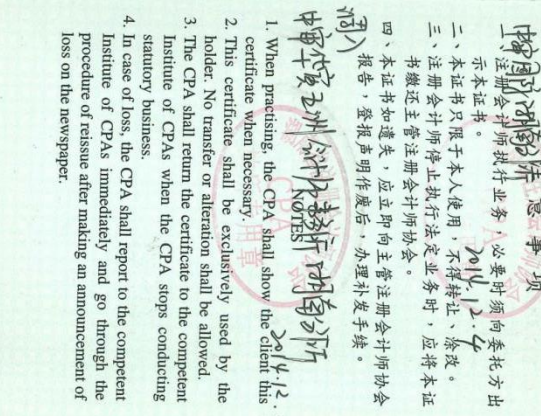 意事项
一、注册会计师执行业务,必要时须向委托方出
示本证书。
2014.12.4
二、本证书只限于本人使用,不得转让、涂改。
三、注册会计师停止执行法定业务时,应将本证
书缴还主管注册会计师协会。
四、本证书如遗失,应立即向主管注册会计师协会
报告,登报声明作废后,办理补发手续。
调入
中审华寅五洲会计师事务所湖南分所
2014.12.
NOTES
1. When practising, the CPA shall show the client this
certificate when necessary.
2. This certificate shall be exclusively used by the
holder. No transfer or alteration shall be allowed.
3. The CPA shall return the certificate to the competent
Institute of CPAs when the CPA stops conducting
statutory business.
4. In case of loss, the CPA shall report to the competent
Institute of CPAs immediately and go through the
procedure of reissue after making an announcement of
loss on the newspaper.